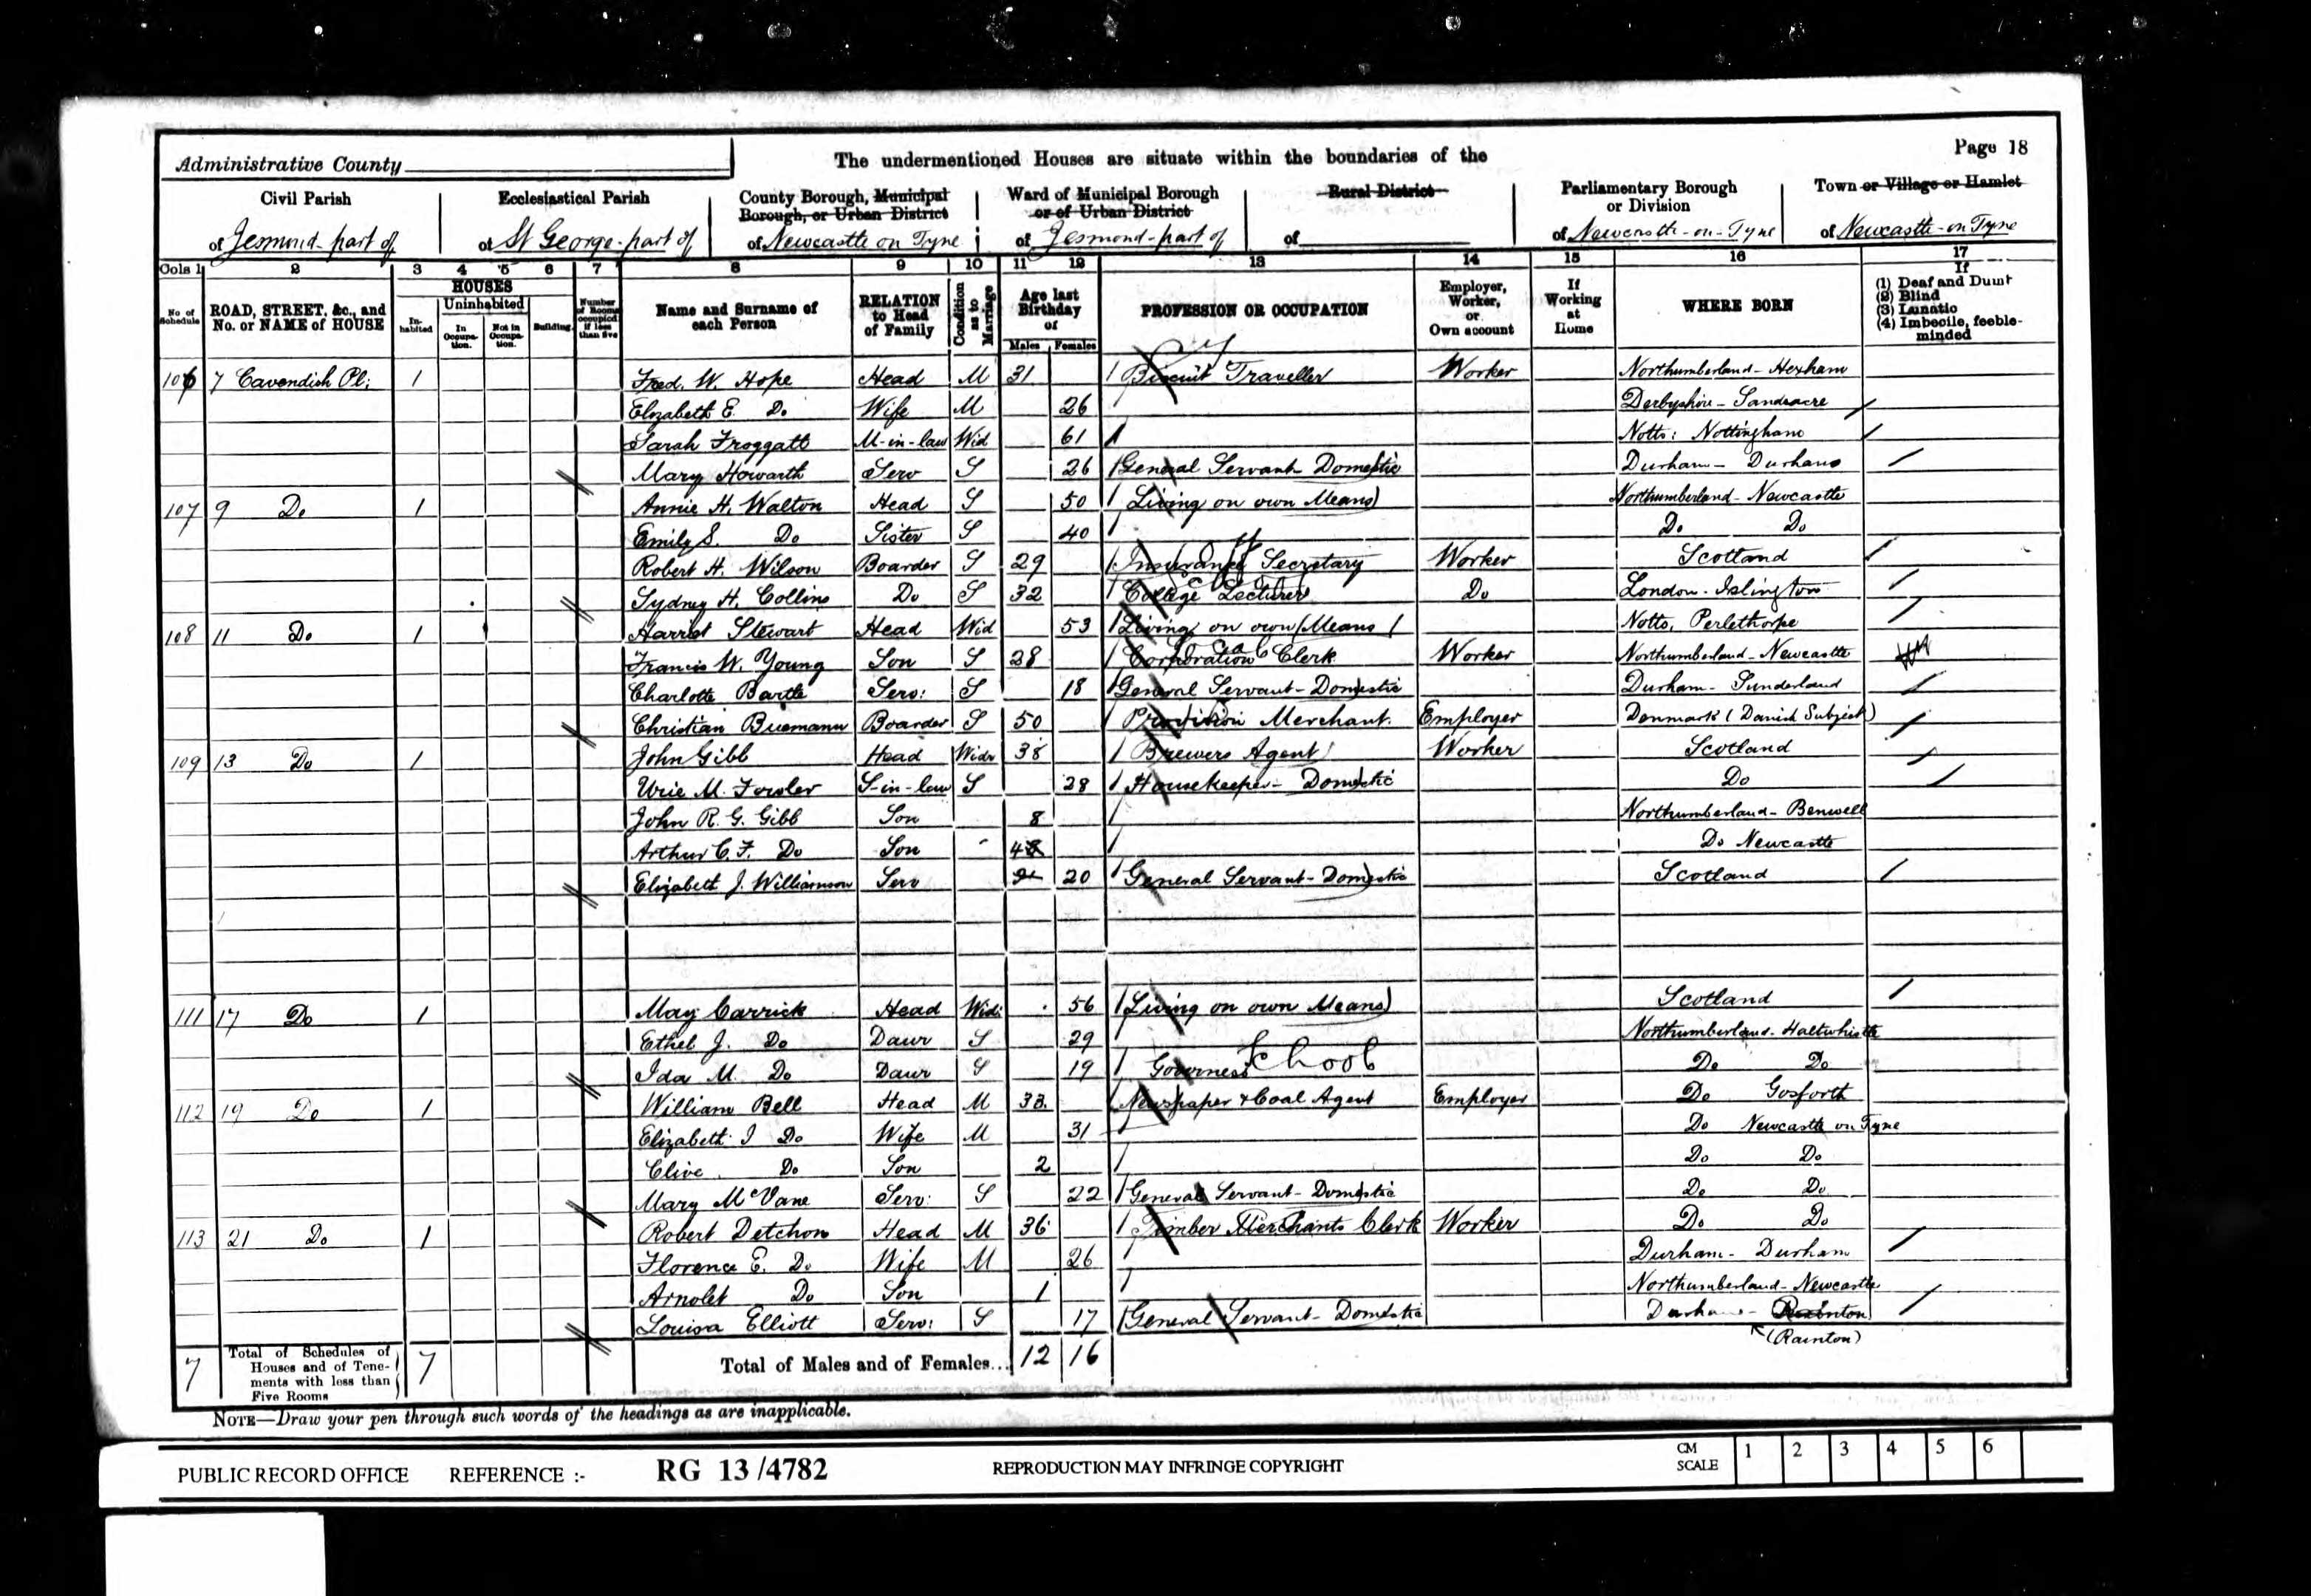 Page 18
Administrative County
The undermentioned Houses are situate within the boundaries of the
Civil Parish
of Jesmond - part of
Ecclesiastical Parish
of St George - part of
County Borough, Municipal Borough, or Urban District
of Newcastle on Tyne
Ward of Municipal Borough or of Urban District
of Jesmond - part of
Rural District
of
Parliamentary Borough or Division
of Newcastle-on-Tyne
Town or Village or Hamlet
of Newcastle-on Tyne
Cols 1 2 3 4 5 6 7 8 9 10 11 12 13 14 15 16 17
No of Schedule
ROAD, STREET, &c., and No. or NAME of HOUSE
HOUSES
Inhabited
Uninhabited
In Occupation.
Not in Occupation.
Building.
Number of Rooms occupied if less than five
Name and Surname of each Person
RELATION to Head of Family
Condition as to Marriage
Age last Birthday of
Males Females
PROFESSION OR OCCUPATION
Employer, Worker, or Own account
If Working at Home
WHERE BORN
If
(1) Deaf and Dumb
(2) Blind
(3) Lunatic
(4) Imbecile, feeble-minded
106 7 Cavendish Pl: 1 Fred. W. Hope Head M 31 Biscuit Traveller Worker Northumberland - Hexham
Elizabeth E. Do Wife M 26 Derbyshire - Sandiacre
Sarah Froggatt M-in-law Wid 61 Notts: Nottingham
Mary Howarth Serv S 26 General Servant Domestic Durham - Durham
107 9 Do 1 Annie H. Walton Head S 50 Living on own Means Northumberland - Newcastle
Emily S. Do Sister S 40 Do Do
Robert H. Wilson Boarder S 29 Insurance Secretary Worker Scotland
Sydney H. Collins Do S 32 College Lecturer Do London - Islington
108 11 Do 1 Harriet Stewart Head Wid 53 Living on own Means Notts, Perlethorpe
Francis W. Young Son S 28 Corporation Clerk Worker Northumberland - Newcastle
Charlotte Bartle Serv: S 18 General Servant - Domestic Durham - Sunderland
Christian Buemann Boarder S 50 Provision Merchant. Employer Denmark (Danish Subject)
109 13 Do 1 John Gibb Head Widr 38 Brewers Agent Worker Scotland
M. Fowler S-in-law S 28 Housekeeper - Domestic Do
John R. G. Gibb Son 8 Northumberland - Benwell
Arthur C. F. Do Son 4 Do Newcastle
Elizabeth J. Williamson Serv 20 General Servant - Domestic Scotland
111 17 Do 1 May Carrick Head Wid: 56 Living on own Means Scotland
Ethel J. Do Daur S 29 Northumberland - Haltwhistle
Ida M. Do Daur S 19 Governess School Do Do
112 19 Do 1 William Bell Head M 33. Newspaper & Coal Agent Employer Do Gosforth
Elizabeth I Do Wife M 31 Do Newcastle on Tyne
Clive Do Son 2 Do Do
Mary McVane Serv: S 22 General Servant - Domestic Do Do
113 21 Do 1 Robert Detchon Head M 36 Timber Merchants Clerk Worker Do Do
Florence E. Do Wife M 26 Durham - Durham
Arnolet Do Son 1 Northumberland - Newcastle
Louisa Elliott Serv: S 17 General Servant - Domestic Durham -
(Rainton)
7 Total of Schedules of Houses and of Tenements with less than Five Rooms 7 Total of Males and of Females... 12 16
NOTE—Draw your pen through such words of the headings as are inapplicable.
PUBLIC RECORD OFFICE REFERENCE :- RG 13/4782 REPRODUCTION MAY INFRINGE COPYRIGHT CM SCALE 1 2 3 4 5 6